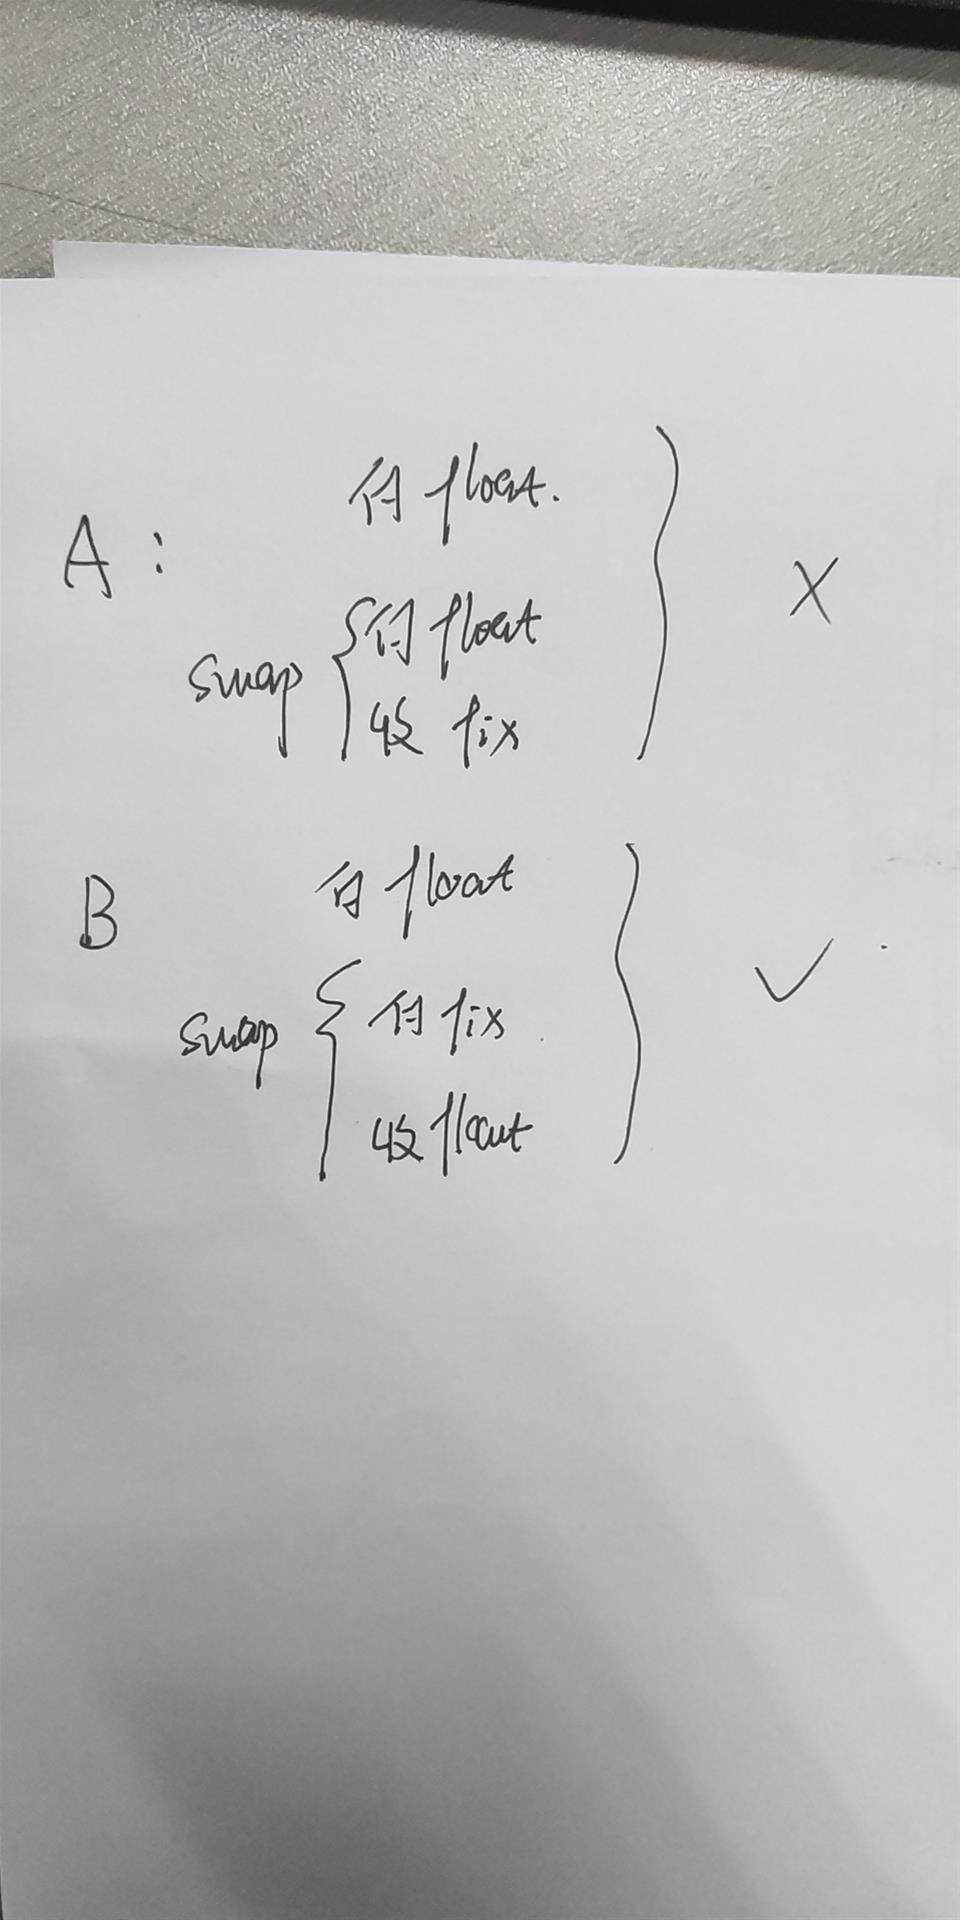 付 float.
A:
X
swap { 付 float
收 fix
付 float
B
✓
swap { 付 fix
收 float